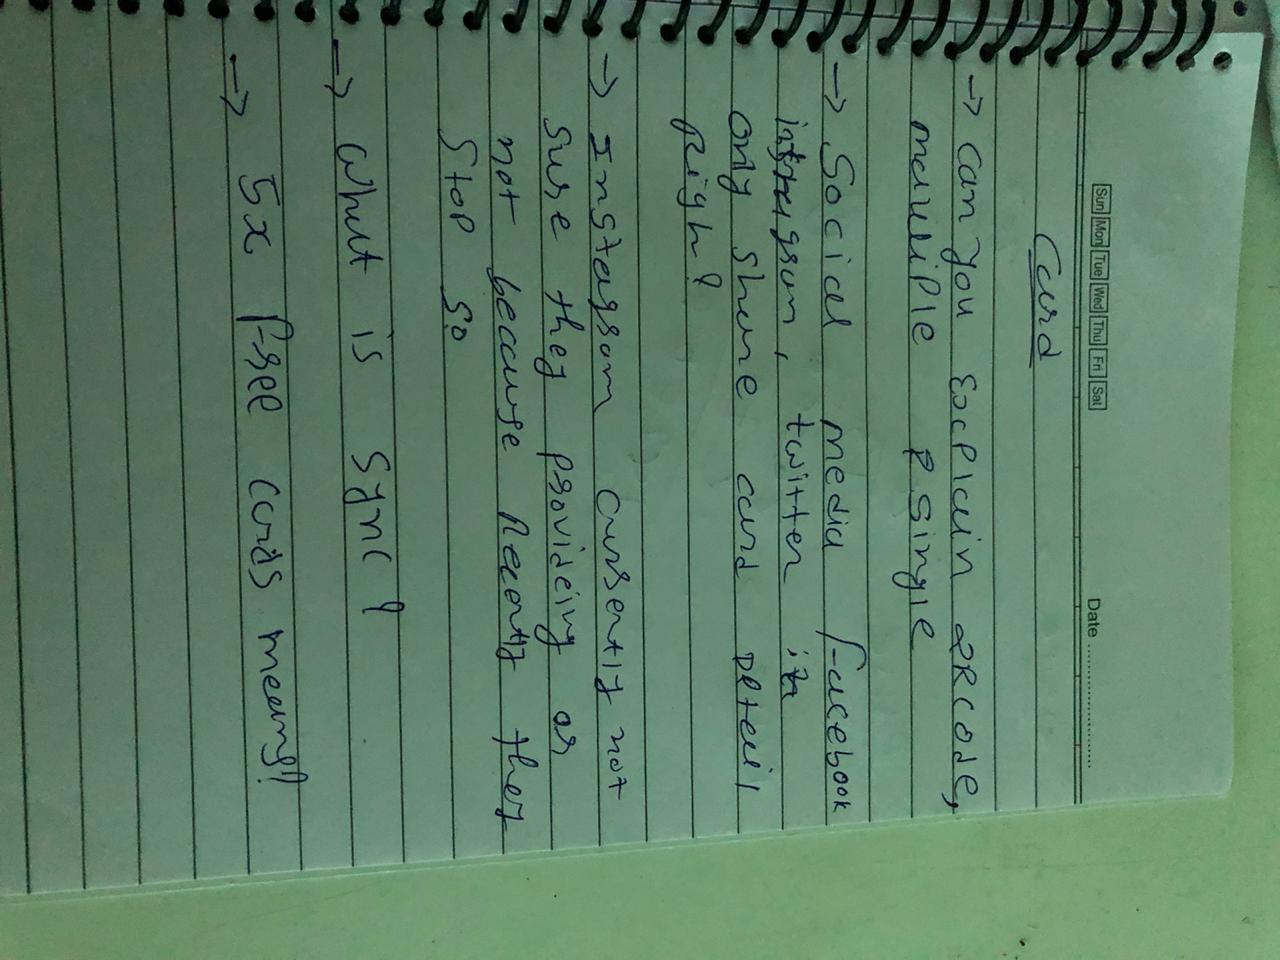 Sun Mon Tue Wed Thu Fri Sat
Date
Card
→ Can you Explain QRCode,
muliple & single
→ Social media facebook
instagram, twitter in
only share card Detail
Righ?
→ Instagram Currently not
sure they provideing or
not because Recently they
Stop so
→ What is sync?
→ 5x free cards meang?